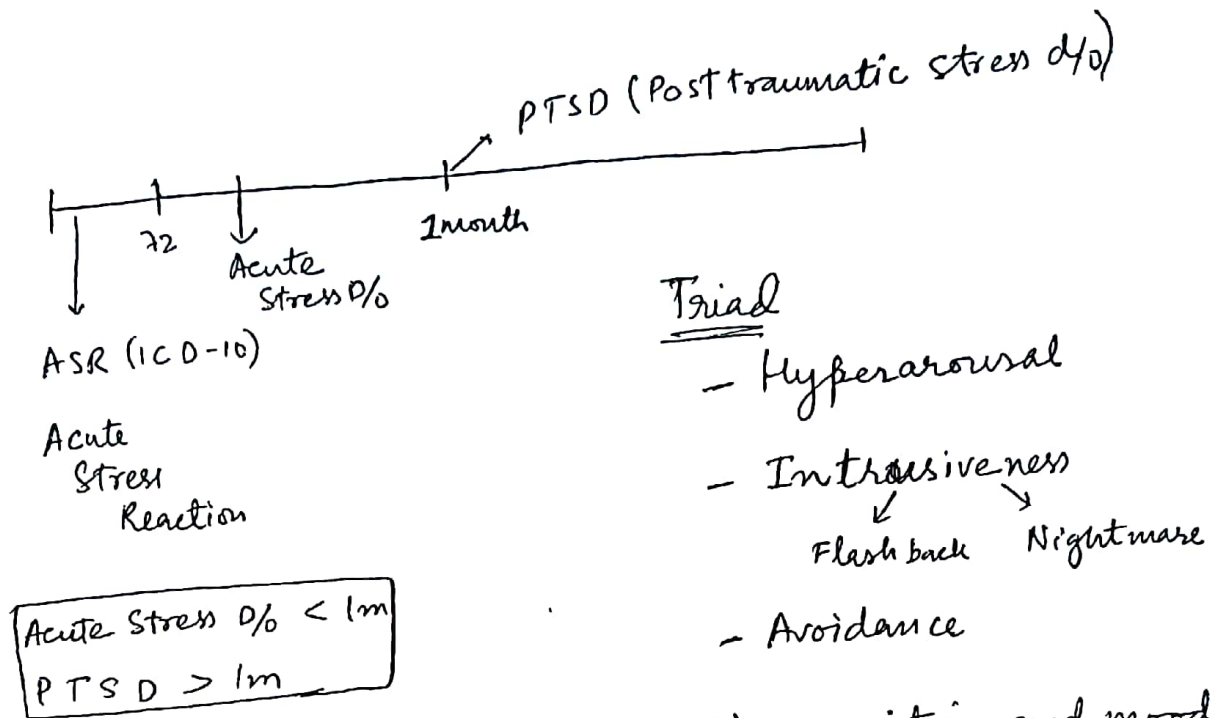 PTSD (Posttraumatic stress d/o)
72
1month
Acute
Stress D/o
ASR (ICD-10)
Acute
Stress
Reaction
Acute Stress D/o < 1m
PTSD > 1m
Triad
- Hyperarousal
- Intrusiveness
Flash back Nightmare
- Avoidance
mood